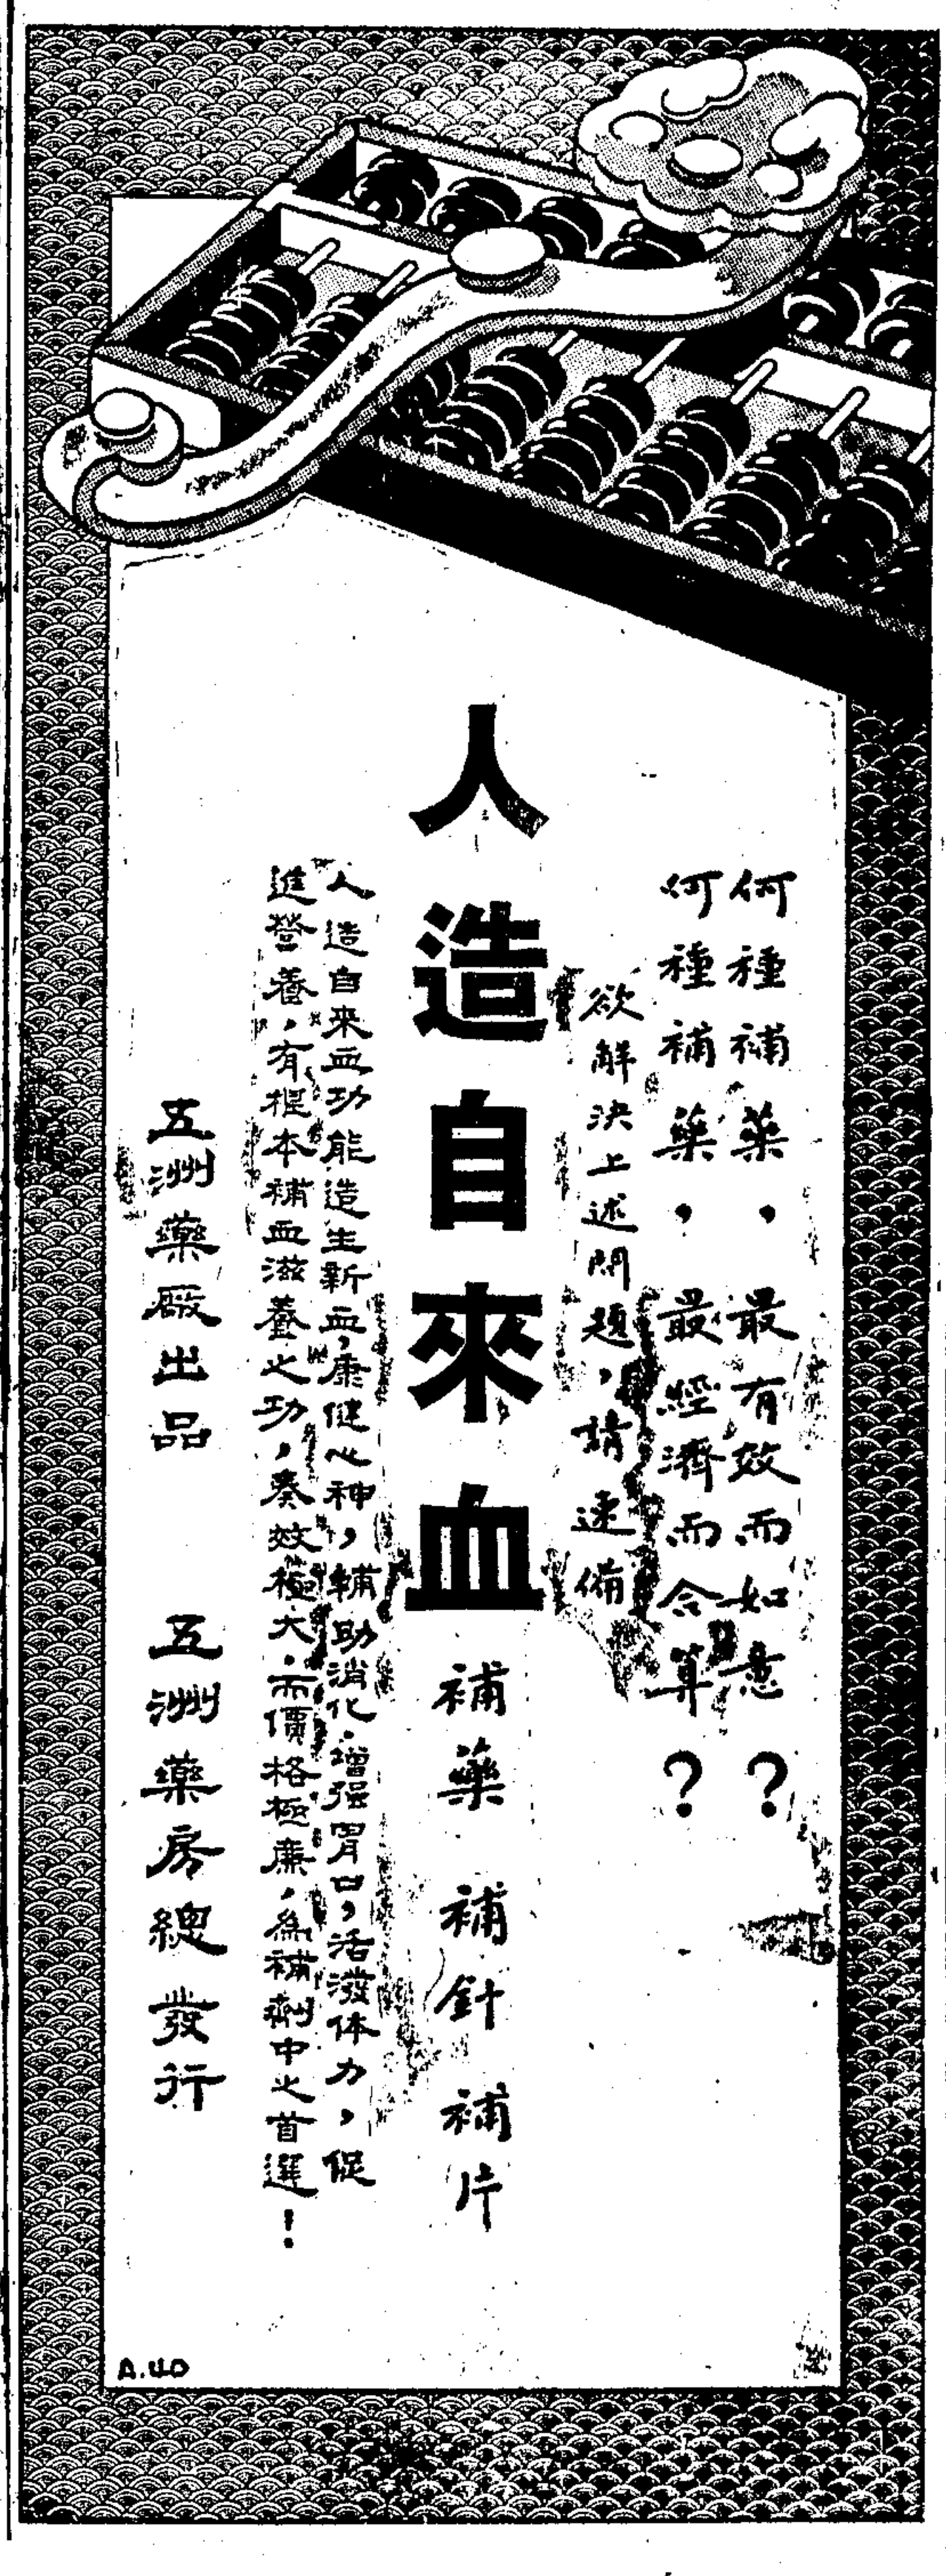 何種補藥，最有效而如意？
何種補藥，最經濟而合算？
欲解決上述問題，請速備
人造自來血 補藥 補針 補片
人造自來血功能造生新血，康健心神，輔助消化，增强胃口，活潑体力，促
進營養，有根本補血滋養之功，奏效極大，而價格極廉，為補劑中之首選！
五洲藥廠出品 五洲藥房總發行
A.40